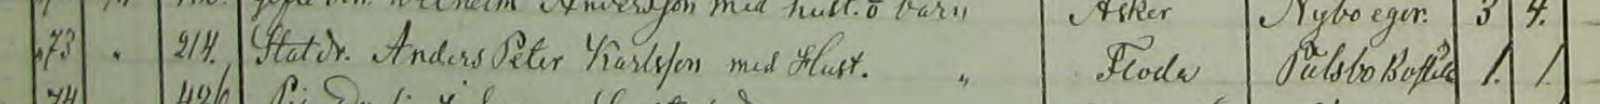 Wilhelm Andersson med hust. o barn Asker Nybo eger. 3 4.
73 " 214. Statdr. Anders Peter Karlsson med Hust. " Floda Pulsbo 1. 1
74 426